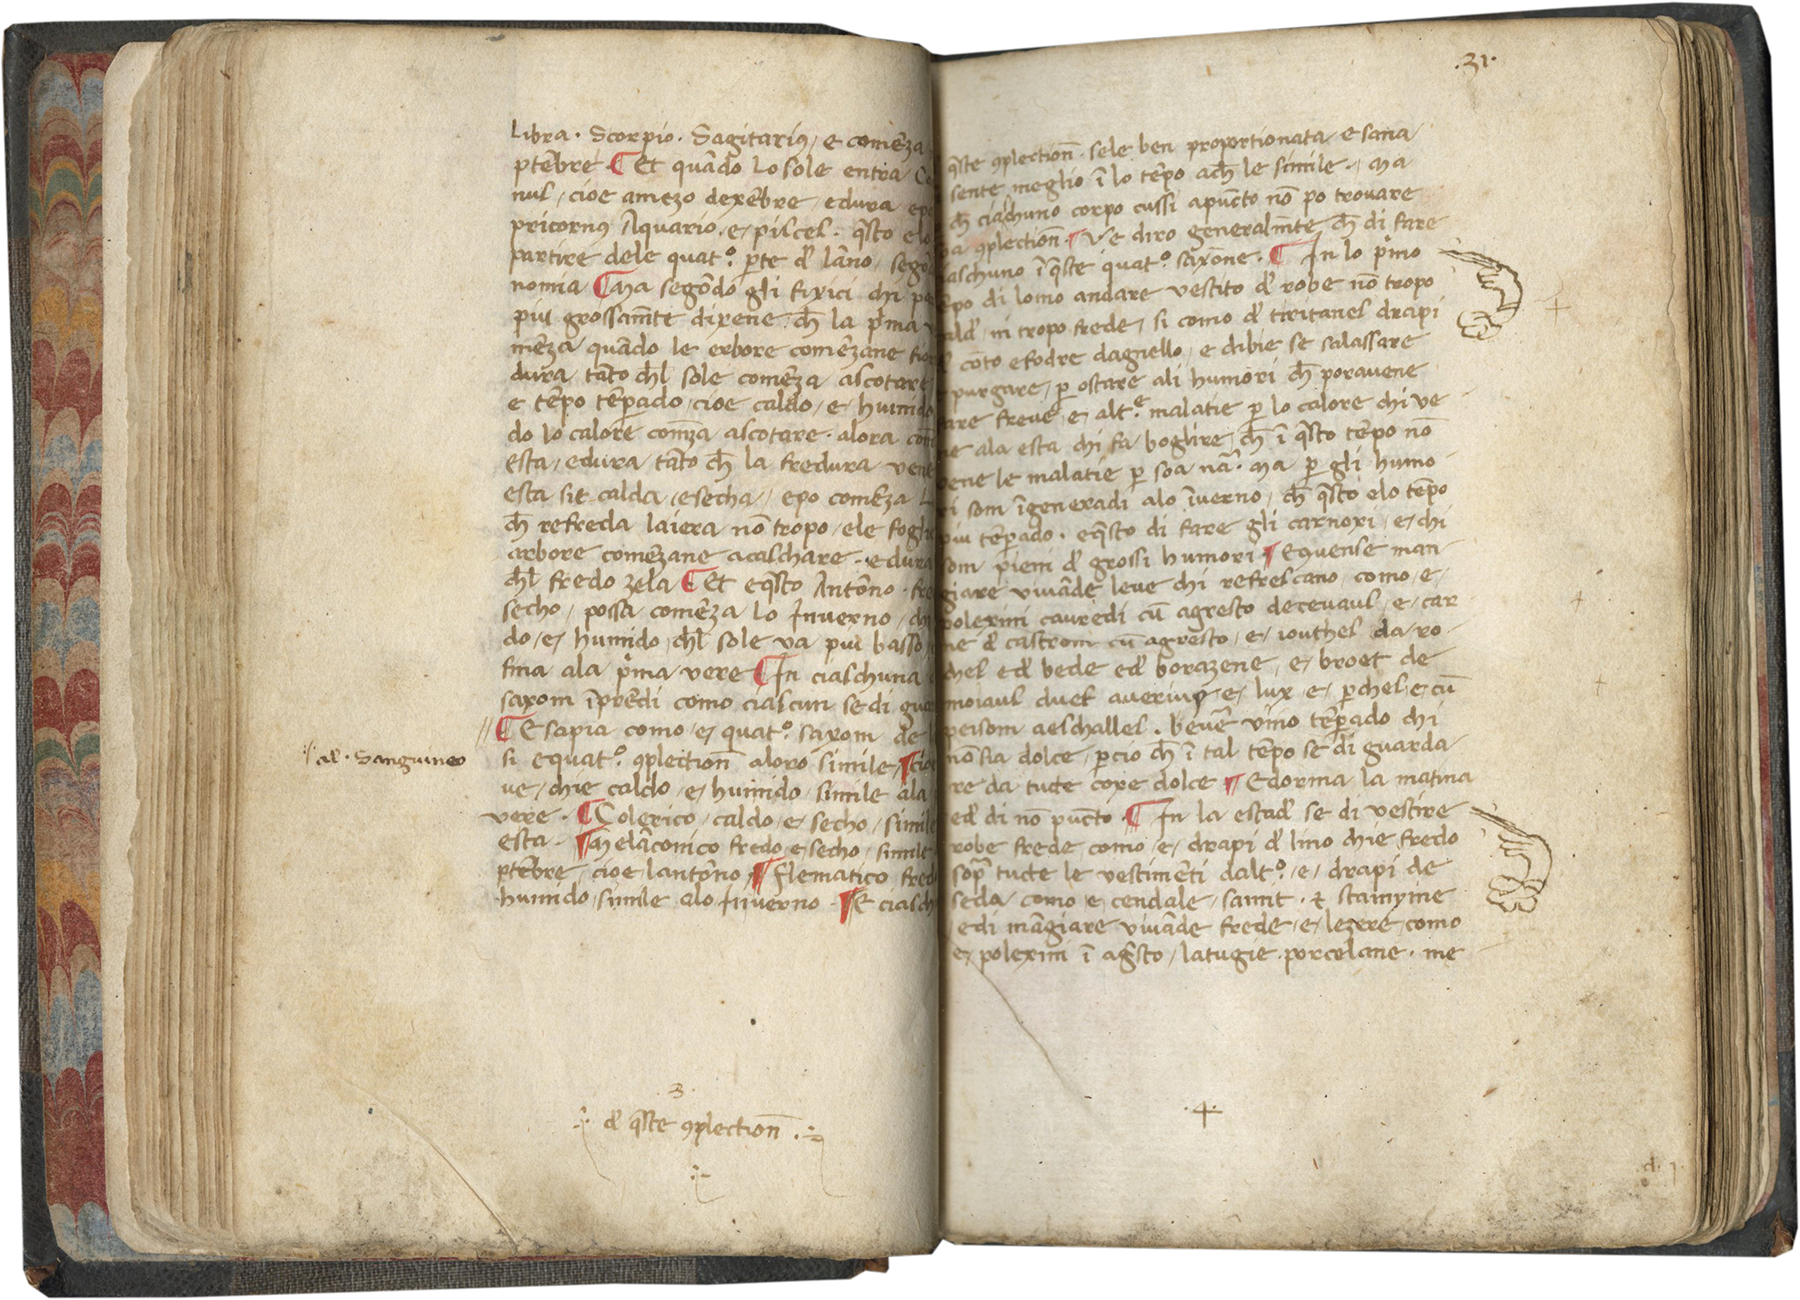 Libra · Scorpio · Sagitariꝰ / e comēza
ptēbre · Et quādo lo sole entra
nus / cioe amezo dexēbre / e dura
pricornꝰ Aquario · e / pisces · q̄sto elo
partire dele quat.º p̱te d' lāno / segō
nomia Ma segōdo gli fixici chi
piu grossam̄te dixene / ch̄ la p'ma
mēza quādo le erbore comēzane
dura tāto ch̄l sole comēza ascotare
e tēpo tēperado / cioe caldo / e / humido
do lo calore comēza ascotare · alora
esta / e dura tāto ch̄ la fredura
esta sie calda / e secha / epo comēza
ch̄ refreda laiera nō tropo / ele
arbore comēzane acaschare · e dura
ch̄l fredo zela Et eq̄sto Antōno ·
secho / possa comēza lo Inverno /
do / e / humido / ch̄l sole va piu basso
fina ala p'ma vere In ciaschuna
saxom īprēdi como ciascun se di
E sapia como / e / quat.º saxom de
si e quat.º ꝯplectioñ aloro simile /
:/ al · Sanguineo
ue / chie caldo / e / humido / simile ala
vere · Colerico / caldo / e / secho / simile
esta · Melāconico fredo e secho / simile
ptēbre / cioe lantōno / Flematico
humido / simile alo Inverno · E
3
d' q̄ste ꝯplectioñ
· 31 ·
q̄ste ꝯplectioñ · sele ben proportionata / e sana
sente meglio ī lo tēpo ach̄ le simile · Ma
ch̄ ciaschuno corpo cussi apuncto nō po trovare
ꝯplectioñ · Ve diro generalm̄te ch̄ di fare
ī q̄ste quat.º saxone · In lo p'mo
di lomo andare vestito d' robe nō tropo
ni tropo frede / si como d' tiritanes drapi
cōto e fodre dagnello / e dibie se salassare
purgare / p̱ ostare ali humori ch̄ poravene
freve / e / alt.e malatie p̱ lo calore chi ve
ne ala esta chi fa boglire / ch̄ ī q̄sto tēpo nō
vene le malatie p̱ soa nā · Ma p̱ gli humo
ri som īgeneradi alo īverno / ch̄ q̄sto elo tēpo
piu tēperado · e q̄sto di fare gli carnoxi / e / chi
som pieni d' grossi humori E quense man
giare vivāde leve chi refrescano / como / e /
polexini cavredi cū agresto de cevaus / e / car
ne d' castrom cū agresto / e / iouthes da ro
ches e d' bede e d' borazene / e / broet de
moiaus duef averiuꝰ e / lux / e / p̱ches e cū
peisom aeschalles · bevē vino tēperado chi
nō sia dolce / p̱cio ch̄ ī tal tēpo se di guarda
re da tute coxe dolce E dorma la matina
e d' di nō pūcto · In la estad' se di vestire
robe frede / como / e / drapi d' lino chie fredo
sop̄ tute le vestimēti dalt.º / e / drapi de
seda / como / e / cendale / samit · & stamyne
e di māgiare vivāde frede / e / lezere / como
e / polexini ī ag̊sto / latugie · porcelane · me
d · 1